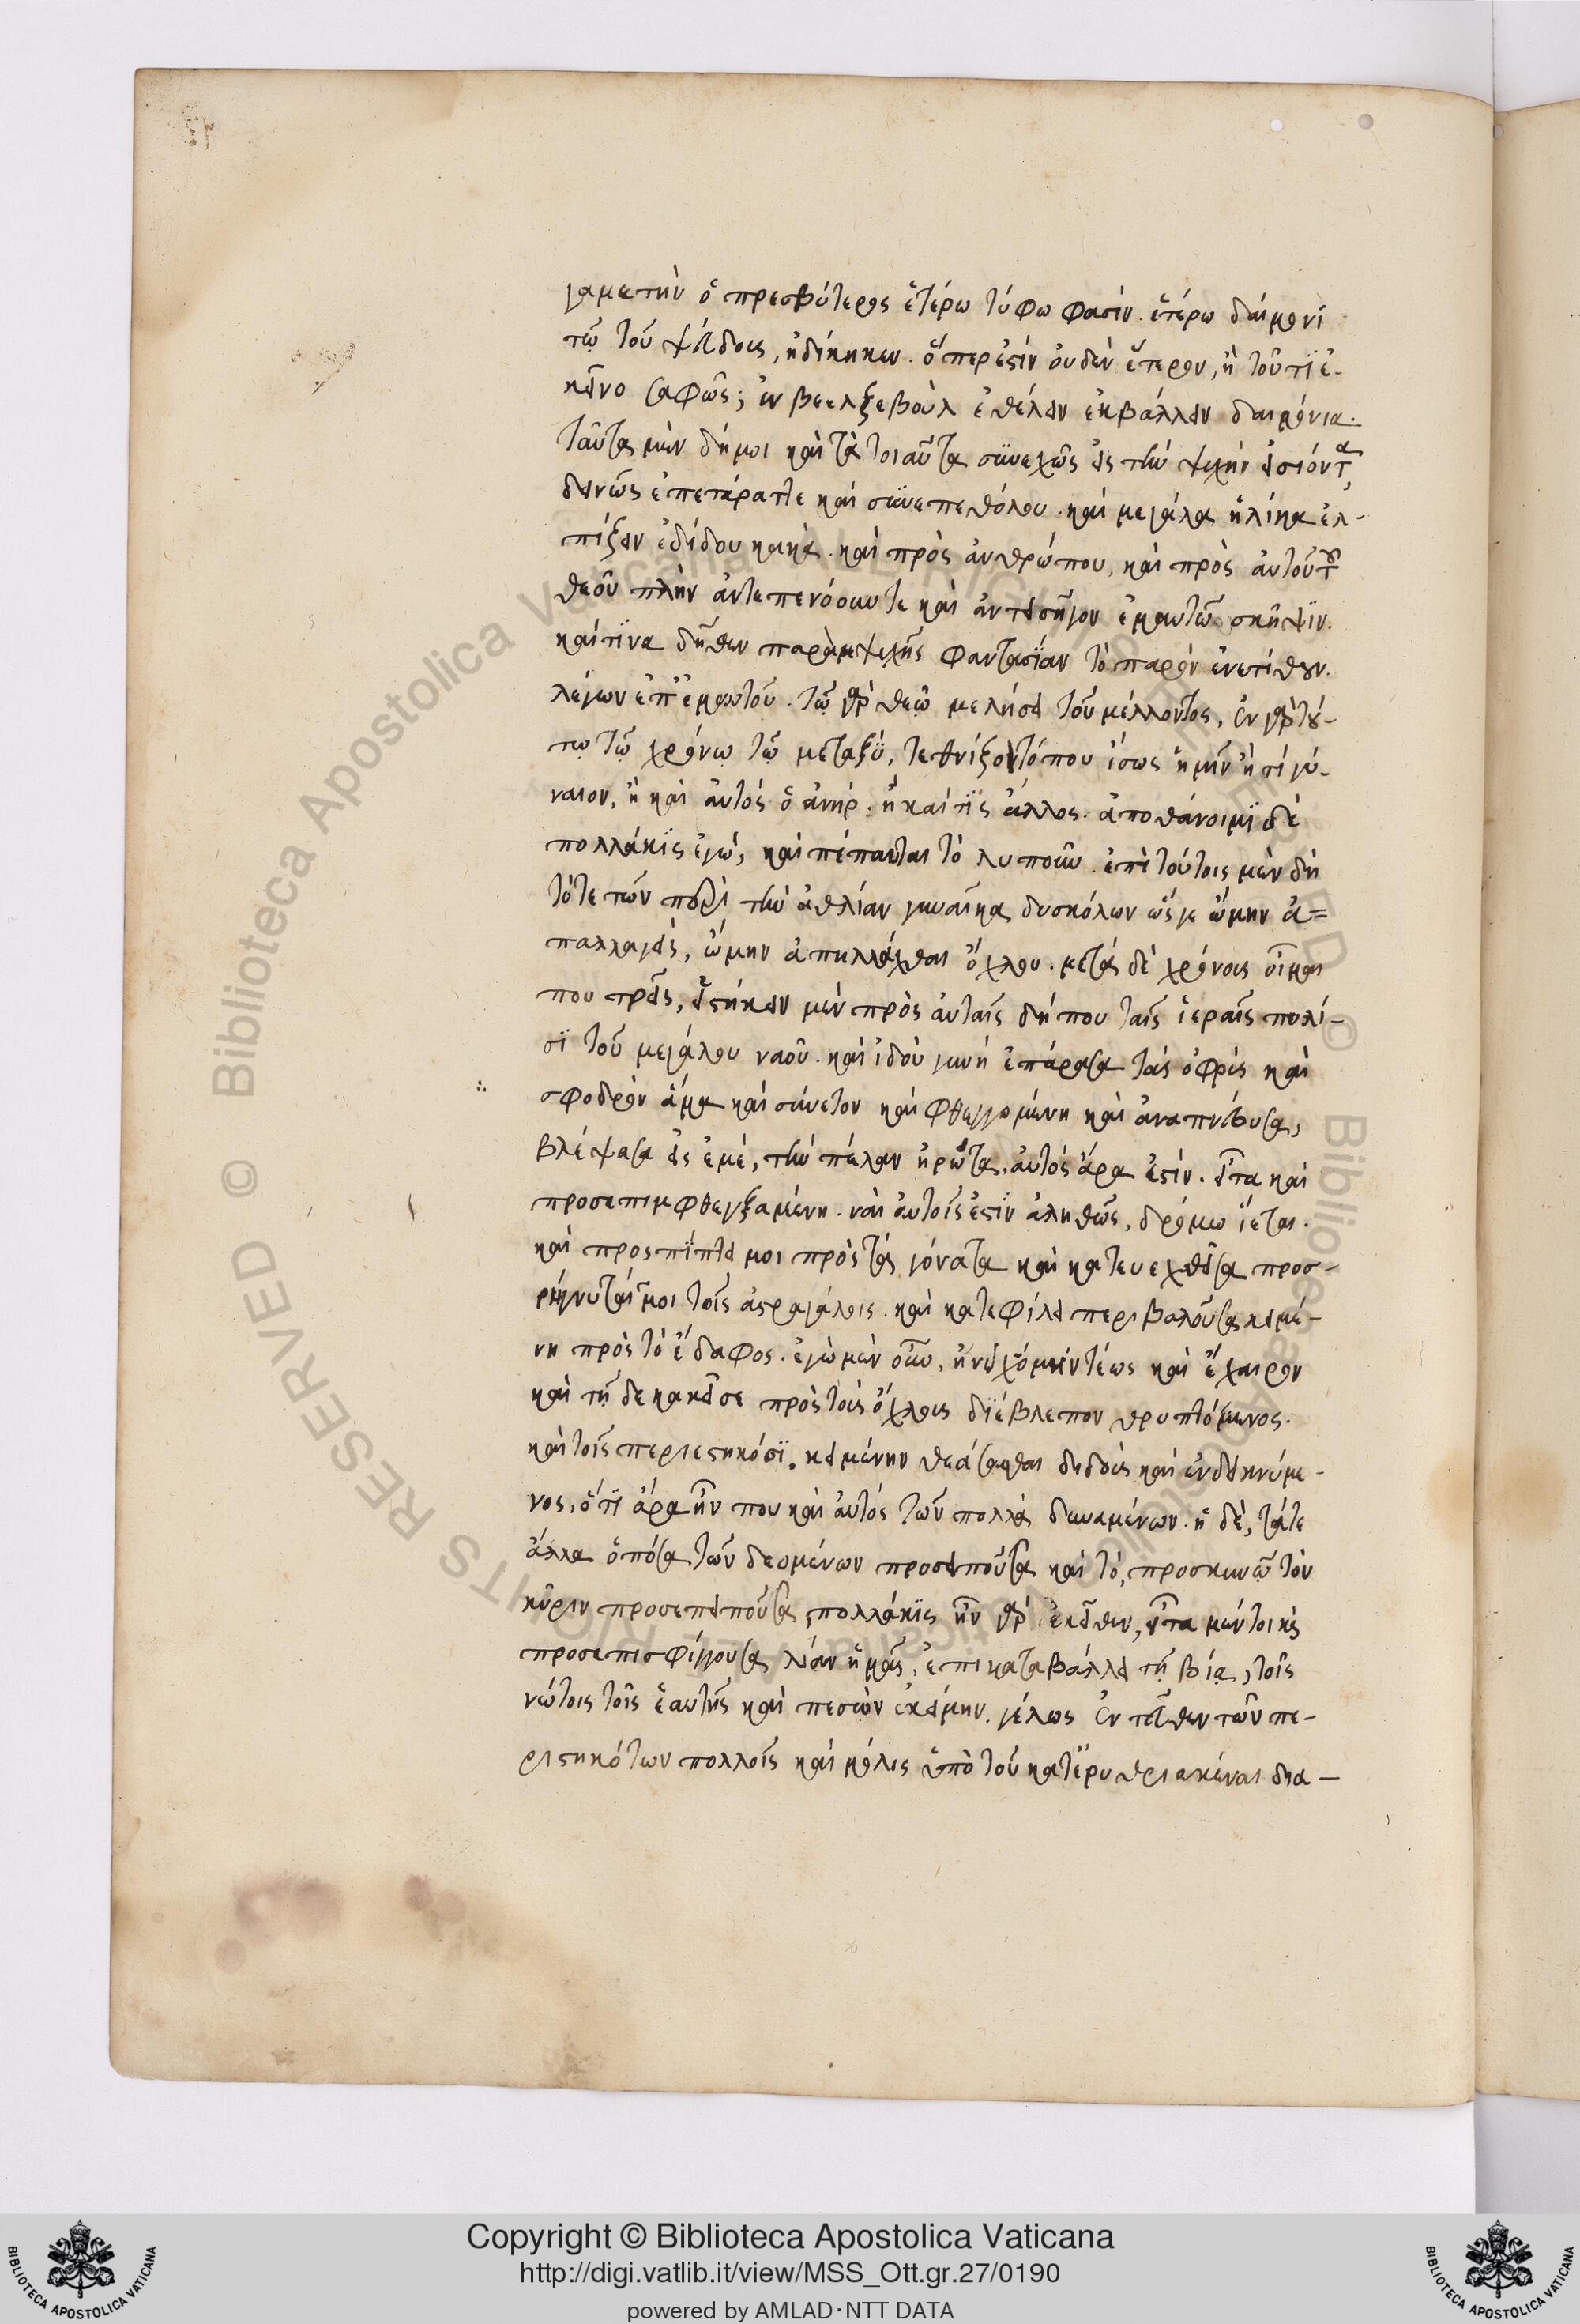 γαμετὴν ὁ πρεσβύτερος ἑτέρω τύφω φασὶν. ἑτέρω δαίμονϊ
τῶ τοῦ ψεύδους, ἠδίκηκεν. ὅπερ ἐστὶν οὐδὲν ἕτερον, ἢ τοῦτϊ ἐ-
κεῖνο σαφῶς; ἐν βεελζεβοὺλ ἐθέλειν ἐκβάλλειν δαιμόνια.
ταῦτα μὲν δή μοι καὶ τὰ τοιαῦτα συνεχῶς εἰς τὴν ψυχὴν εἰσιόντα,
δεινῶς ἐπετάραττε καὶ συνεπεθόλου. καὶ μεγάλα ἡλίκα ἐλ-
πίζειν ἐδίδου κακὰ. καὶ πρὸς ἀνθρώπου, καὶ πρὸς αὐτοῦ τοῦ
θεοῦ πλὴν ἀντεπενόουν τε καὶ ἀντεισῆγον ἐμαυτῶ σκῆψϊν.
καί τϊνα δῆθεν παραμψυχῆς φαντασΐαν τὸ παρὸν ἐνετίθουν.
λέγων ἐπ' ἐμαυτοῦ. τῷ γὰρ θεῷ μελήσει τοῦ μέλλοντος, ἐν γὰρ τού-
τῳ τῷ χρόνῳ τῷ μεταξὺ, τεθνίξοιτό που ἴσως ἡμῖν ἢ τὶ γύ-
ναιον, ἢ καὶ αὐτὸς ὁ ἀνήρ. ἢ καί τϊς ἄλλος. ἀποθάνοιμϊ δὲ
πολλάκϊς ἐγὼ, καὶ πέπαυται τὸ λυποῦν. ἐπὶ τούτοις μὲν δὴ
τότε τῶν περὶ τὴν ἀθλίαν γυναῖκα δυσκόλων ὥς γε ὤμην ἀ=
παλλαγεὶς, ᾤμην ἀπηλλάχθαι ὄχλου. μετὰ δὲ χρόνους οἶμαι
που τρεῖς, εἱστήκειν μὲν πρὸς αὐταῖς δήπου ταῖς ἱεραῖς πυλί-
σϊ τοῦ μεγάλου ναοῦ. καὶ ἰδοὺ γυνὴ ἐπάρασα τὰς ὀφρῦς καὶ
σφοδρὸν ἅμα καὶ σύνετον καὶ φθεγγομένη καὶ ἀναπνέουσα,
βλέψασα εἰς ἐμὲ, τὴν πέλαν ἠρώτα. αὐτὸς ἄρα ἐστὶν. εἶτα καὶ
προσεπιμφθεγξαμένη. ναὶ αὐτοῖς ἐστϊν ἀληθῶς, δρόμω ἵεται.
καὶ προσπΐπτει μοι πρὸς τὰ γόνατα καὶ κατενεχθεῖσα προσ-
ρήγνυταί μοι τοῖς ἀστραγάλοις. καὶ κατεφίλει περιβαλοῦσα κειμέ-
νη πρὸς τὸ ἔδαφος. ἐγὼ μὲν οὖν, ἠνειχόμην τέως καὶ ἔχαιρον
καὶ τῇδε κακεῖσε πρὸς τοὺς ὄχλους δϊέβλεπον θρυπτόμενος.
καὶ τοῖς περιεστηκόσϊ. κειμένην θεάσασθαι διδοὺς καὶ ἐνδεικνύμε-
νος, ὅτϊ ἄρα ἦν που καὶ αὐτὸς τῶν πολλὰ δυναμένων. ἡ δὲ, τά τε
ἄλλα ὁπόσα τῶν δεομένων προσειποῦσα καὶ τὸ, προσκυνῶ τὸν
κῦριν προσεπειποῦσα, πολλάκϊς ἦν γὰρ ἐκεῖθεν, εἶτα μέντοι καὶ
προσεπισφίγγουσα λίαν ἡμᾶς, ἐπικαταβάλλει τῇ βίᾳ, τοῖς
νώτοις τοῖς ἑαυτῆς καὶ πεσὼν ἐκείμην. γέλως ἐντεῦθεν τῶν πε-
ριστηκότων πολλοῖς καὶ μόλις ὑπὸ τοῦ κατερυθριακέναι δια-
Copyright © Biblioteca Apostolica Vaticana
http://digi.vatlib.it/view/MSS_Ott.gr.27/0190
powered by AMLAD·NTT DATA